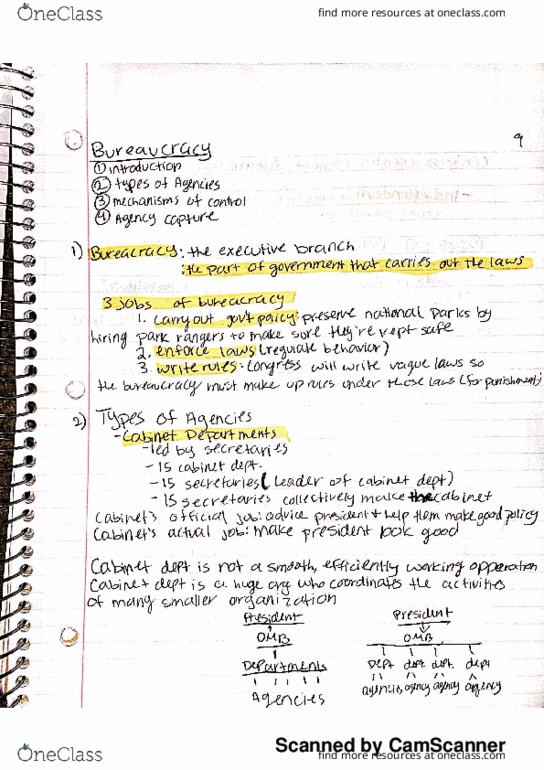 OneClass
find more resources at oneclass.com
9
Bureaucracy
① introduction
② types of Agencies
③ mechanisms of control
④ Agency capture
1) Bureaucracy: the executive branch
: the part of government that carries out the laws
3 jobs of bureaucracy
1. carry out gov't policy: preserve national parks by
hiring park rangers to make sure they're kept safe
2. enforce laws (regulate behavior)
3. write rules: congress will write vague laws so
the bureaucracy must make up rules under those laws (for punishment)
2) Types of Agencies
- Cabinet Departments
- led by secretaries
- 15 cabinet dept.
- 15 secretaries (leader of cabinet dept)
- 15 secretaries collectively make the cabinet
Cabinet's official job: advice president + help them make good policy
Cabinet's actual job: make president look good
Cabinet dept is not a smooth, efficiently working opperation
Cabinet dept is a huge org who coordinates the activities
of many smaller organization
President
OMB
Departments
Agencies
President
OMB
Dept dept dept. dept
agencies agency agency agency
Scanned by CamScanner
OneClass
find more resources at oneclass.com